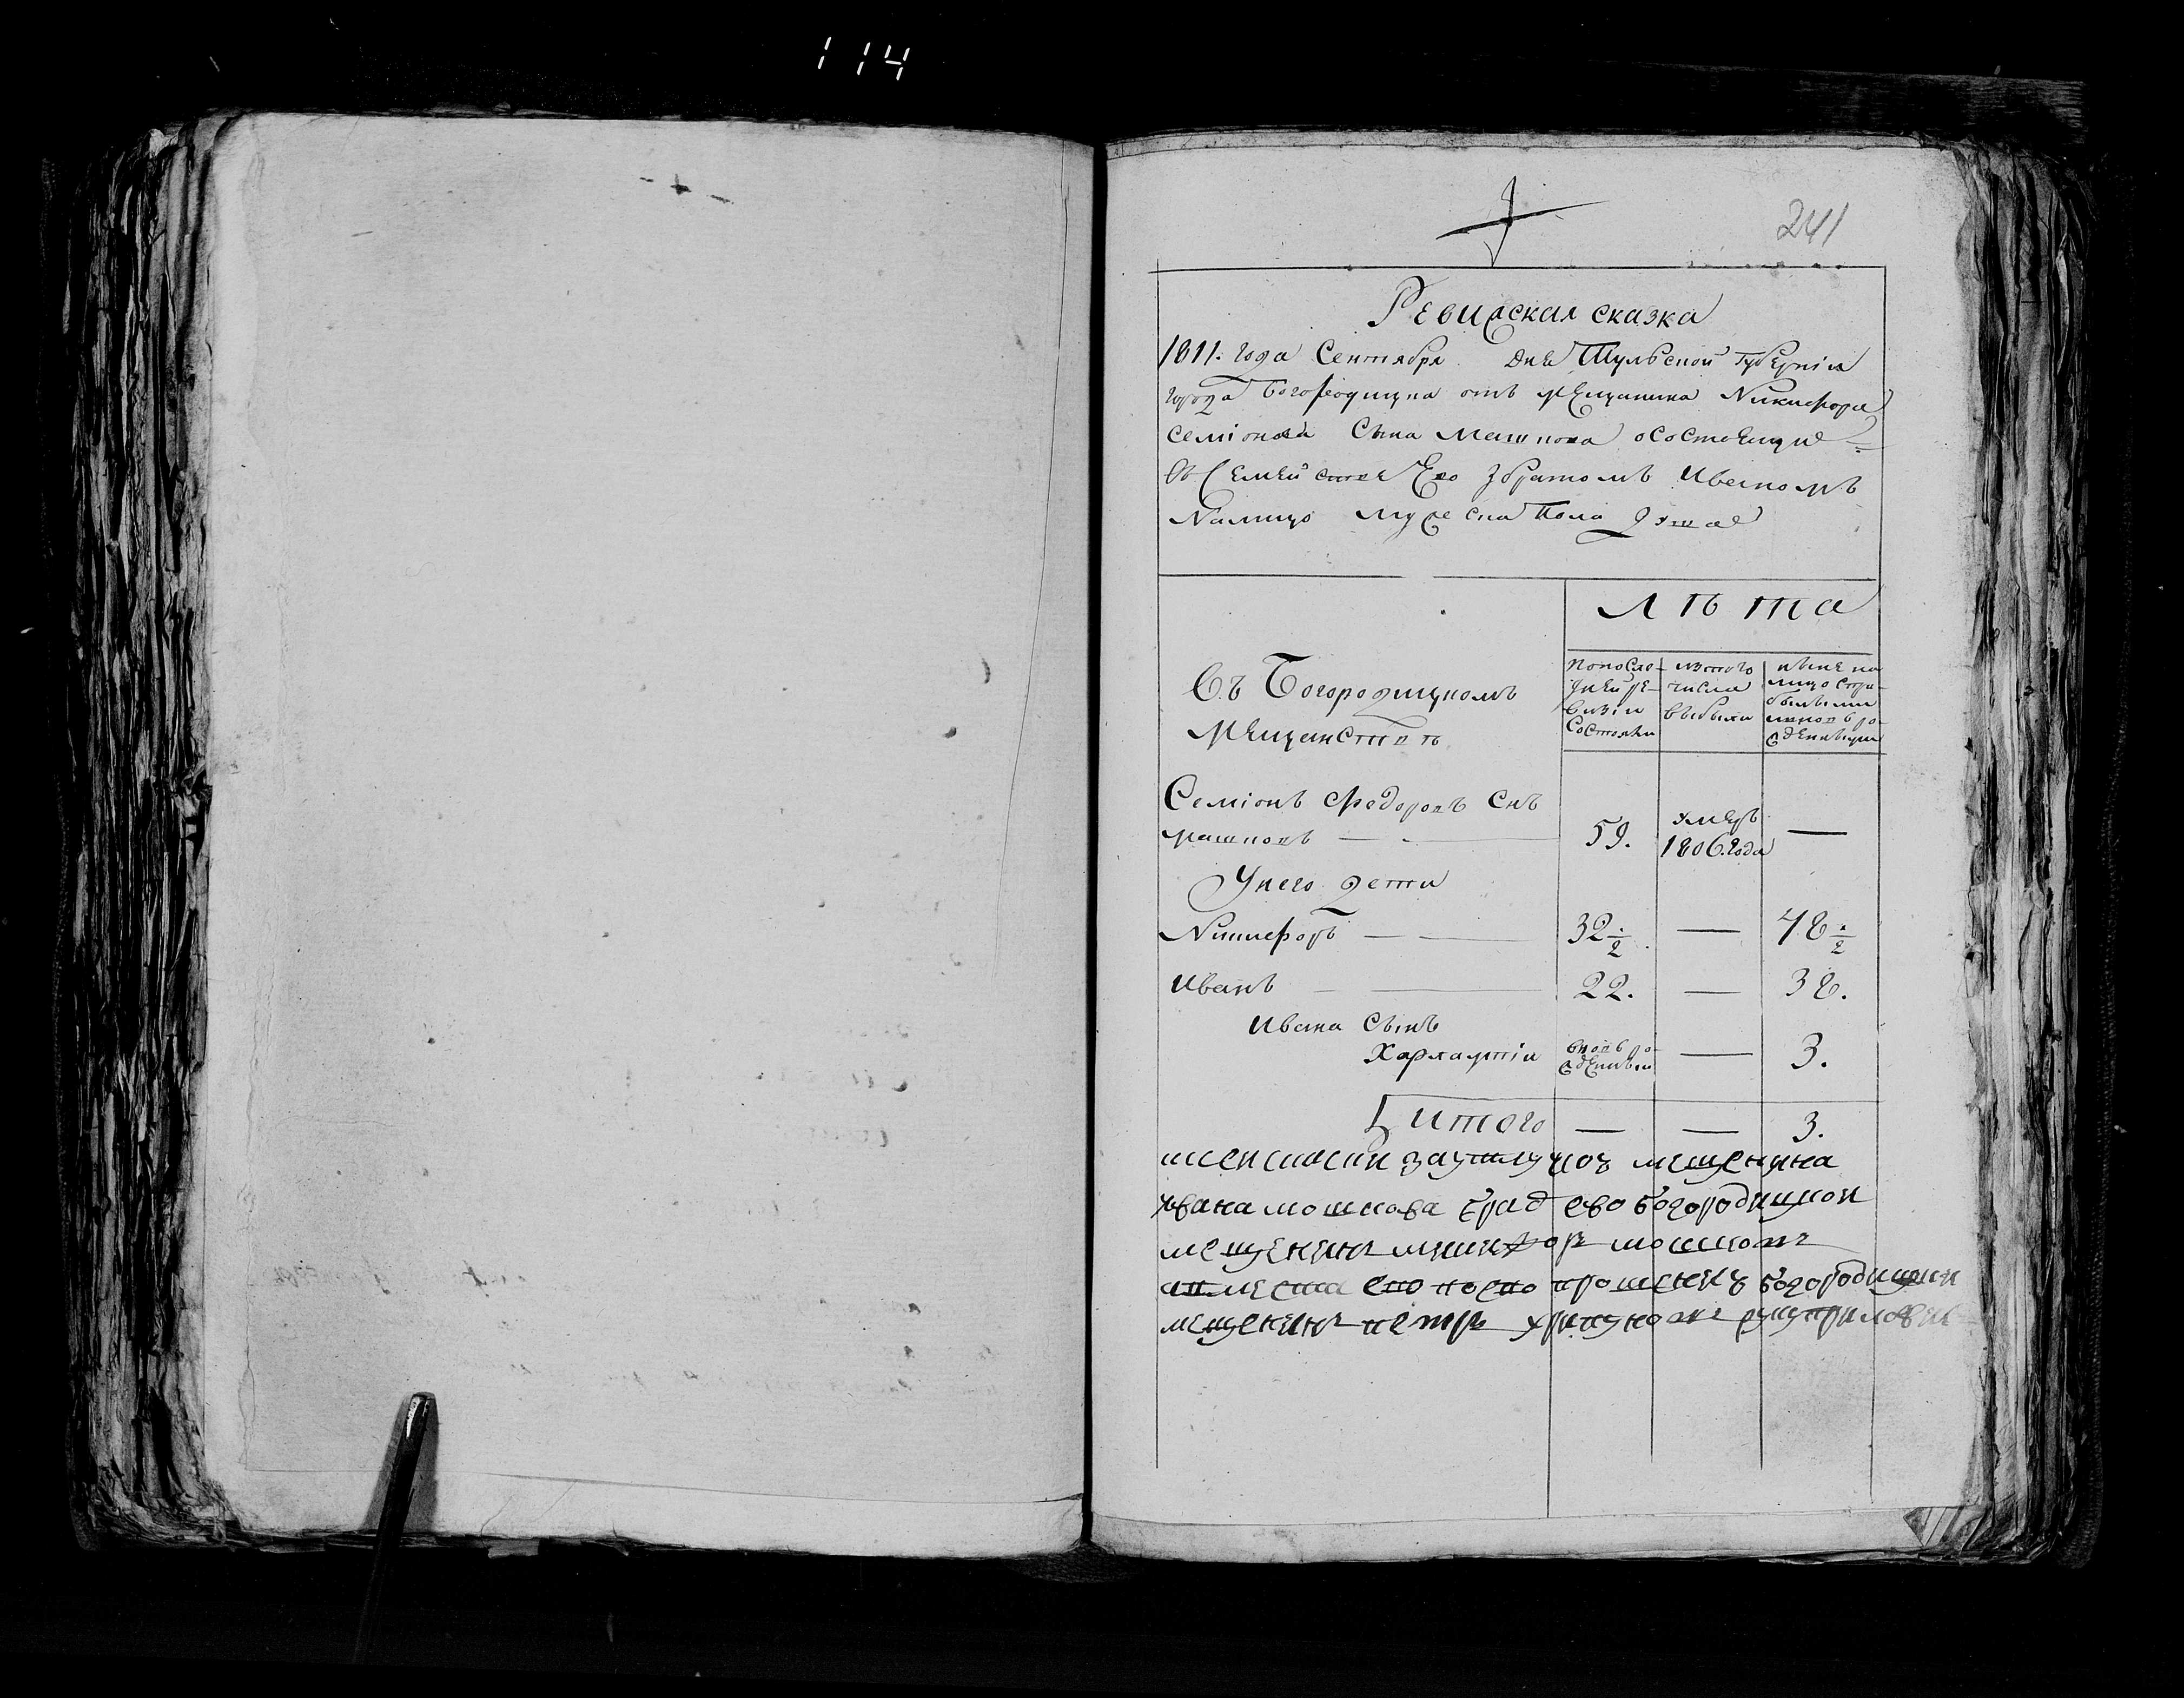 114
241
Ревиская сказка
1811: года Сентября дня Тульской Губернiи
города Богородицка отъ мещанина Никифора
Семiонова Сына Машкова о состоящие
въ Семействе Его збратомъ Иваномъ
Налицо мужеска Пола душъ
Лѣта
Въ Богородицкомъ
мещанствѣ
по после-
дней ре-
визiи
Состояли
изтого
числа
выбыли
ныне на
лицо
вновь ро-
жденными
Семiонъ Федоровъ Снъ
машковъ
59.
умеръ
1806. года
—
Унего дети
Никифоръ
32 1/2
—
48 1/2
Иванъ
22.
—
38.
Ивана Сынъ
Харлампiи
вновь ро-
жденный
—
3.
Итого
—
—
3.
мещенина
ивана мошкова брад ево богородицкои
мещенинъ мошковъ
ево прошению богородицкии
мещенинъ петръ руку приложилъ